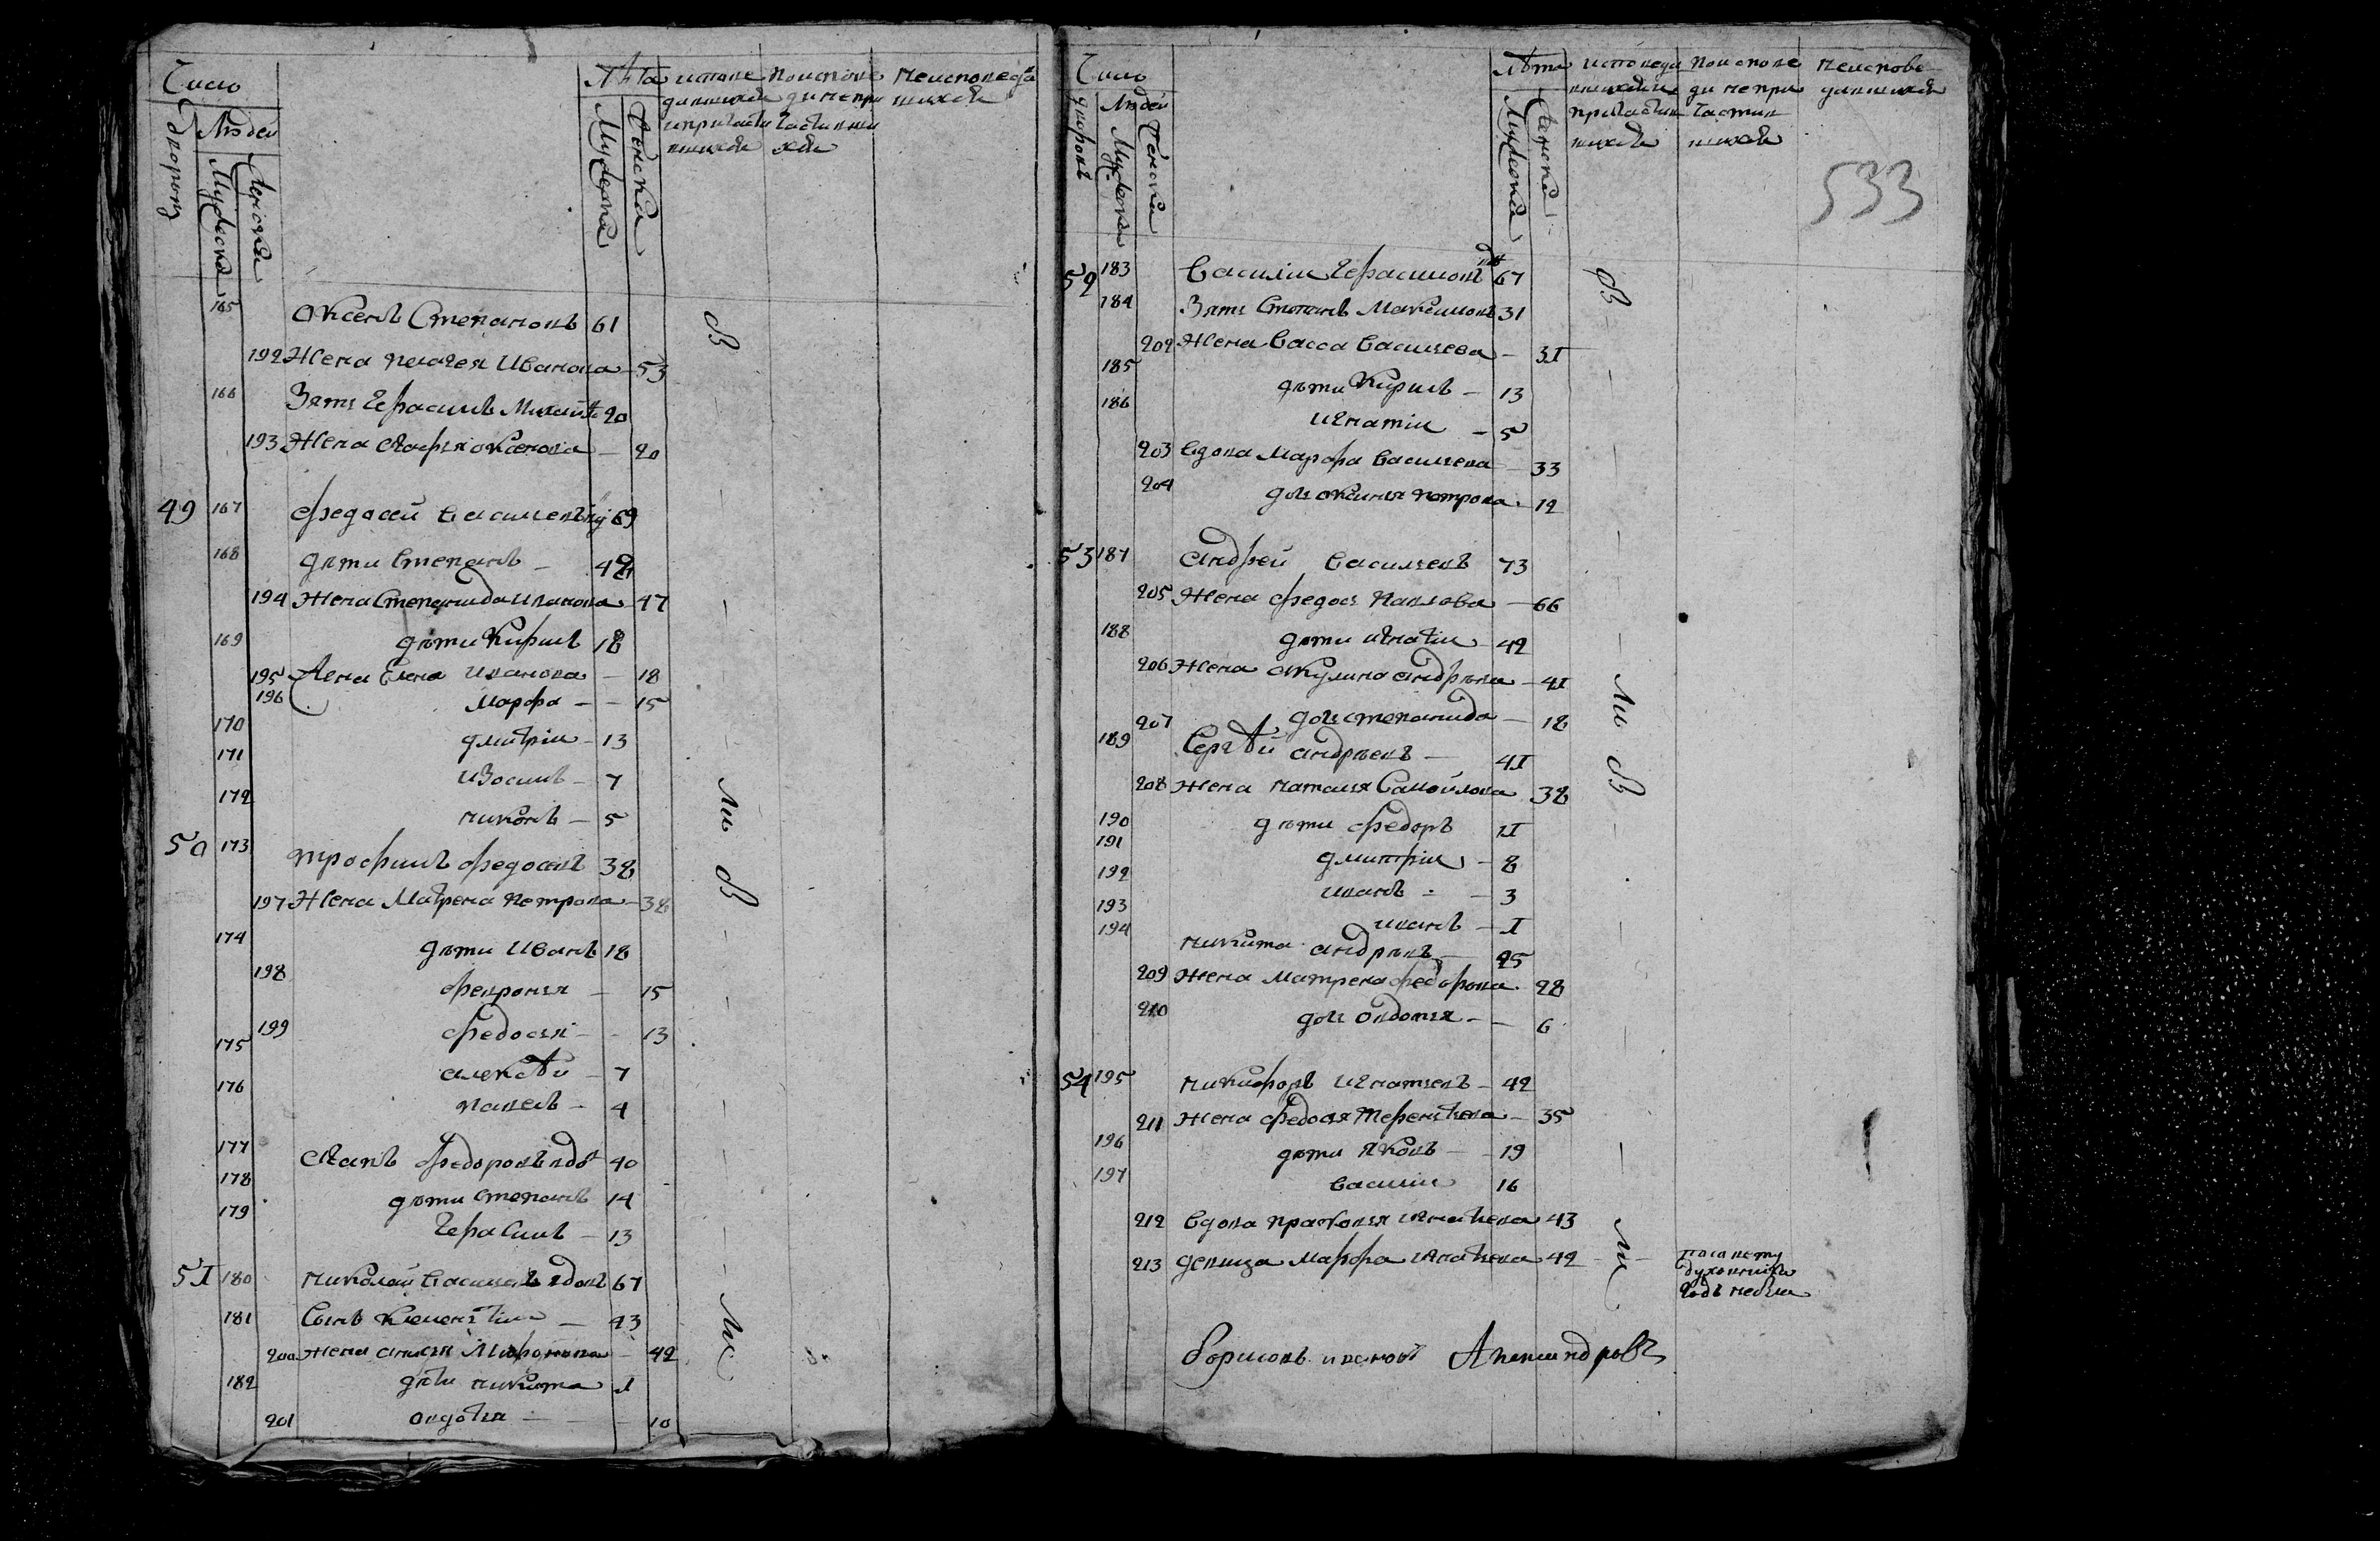 Число
Людеи
дворовъ
Мужеска
Женска
Лѣта
Мужеска
Женска
исповедавшихся и причастившихся
по исповеди непричастившихся
неисповедавшихся
165 Аксенъ Степановъ 61
192 Жена Пелагея Иванова 53
166 Зять Герасимъ 20
193 Жена Аксенова 20
49 167 Федосеи Васильевъ 69
168 дѣти Степанъ 48
194 Жена Степанида Иванова 47
169 дѣти Кирилъ 18
195 Жена Елена Иванова 18
196 Марфа 15
170 дмитріи 13
171 Изосимъ 7
172 никонъ 5
50 173 Трофимъ Федосеевъ 38
197 Жена Матрена Петрова 38
174 дѣти Иванъ 18
198 Феврония 15
199 Федосья 13
175 алексѣи 7
176 Павелъ 4
177 Федоровъ вдовъ 40
178 дѣти степанъ 14
179 Герасимъ 13
51 180 Николаи Васильевъ вдовъ 67
181 Сынъ Клементіи 43
200 Жена анисья Миронова 42
182 дѣти никита 1
201 овдотья 10
Число
дворовъ
Людеи
Мужеска
Женска
Лѣта
Мужеска
Женска
исповедавшихся и причастившихся
по исповеди непричастившихся
неисповедавшихся
533
52 183 Василіи Герасимовъ 67
184 Зять Степанъ Максимовъ 31
202 Жена Васса Васильева 31
185 дѣти Кирилъ 13
186 игнатіи 5
203 вдова Марфа Васильева 33
204 дочь оксинья Петрова 12
53 187 андреи Васильевъ 73
205 Жена Федосья Павлова 66
188 дѣти игнатіи 42
206 Жена акулина андрѣева 41
207 дочь степанида 18
189 Сергѣи андрѣевъ 41
208 Жена наталья Самоилова 38
190 дѣти Федоръ 11
191 дмитріи 8
192 иванъ 3
193 иванъ 1
194 никита андрѣевъ 25
209 Жена матрена федорова 28
210 дочь овдотья 6
54 195 никифоръ игнатьевъ 42
211 Жена Федосья Терентьева 35
196 дѣти яковъ 19
197 василіи 16
212 вдова прасковья игнатьева 43
213 девица марфа игнатьева 42
по совету
духовника
годъ
ивановъ Александровъ